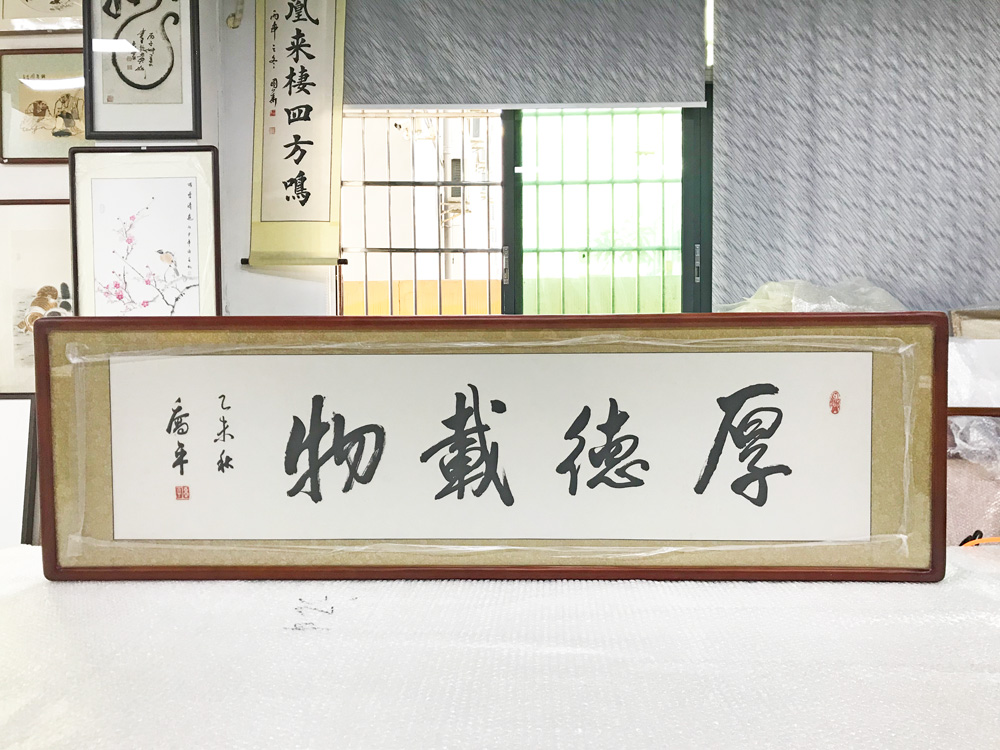 厚德載物
乙未秋
喬平
凰来棲四方鳴
丙申之冬